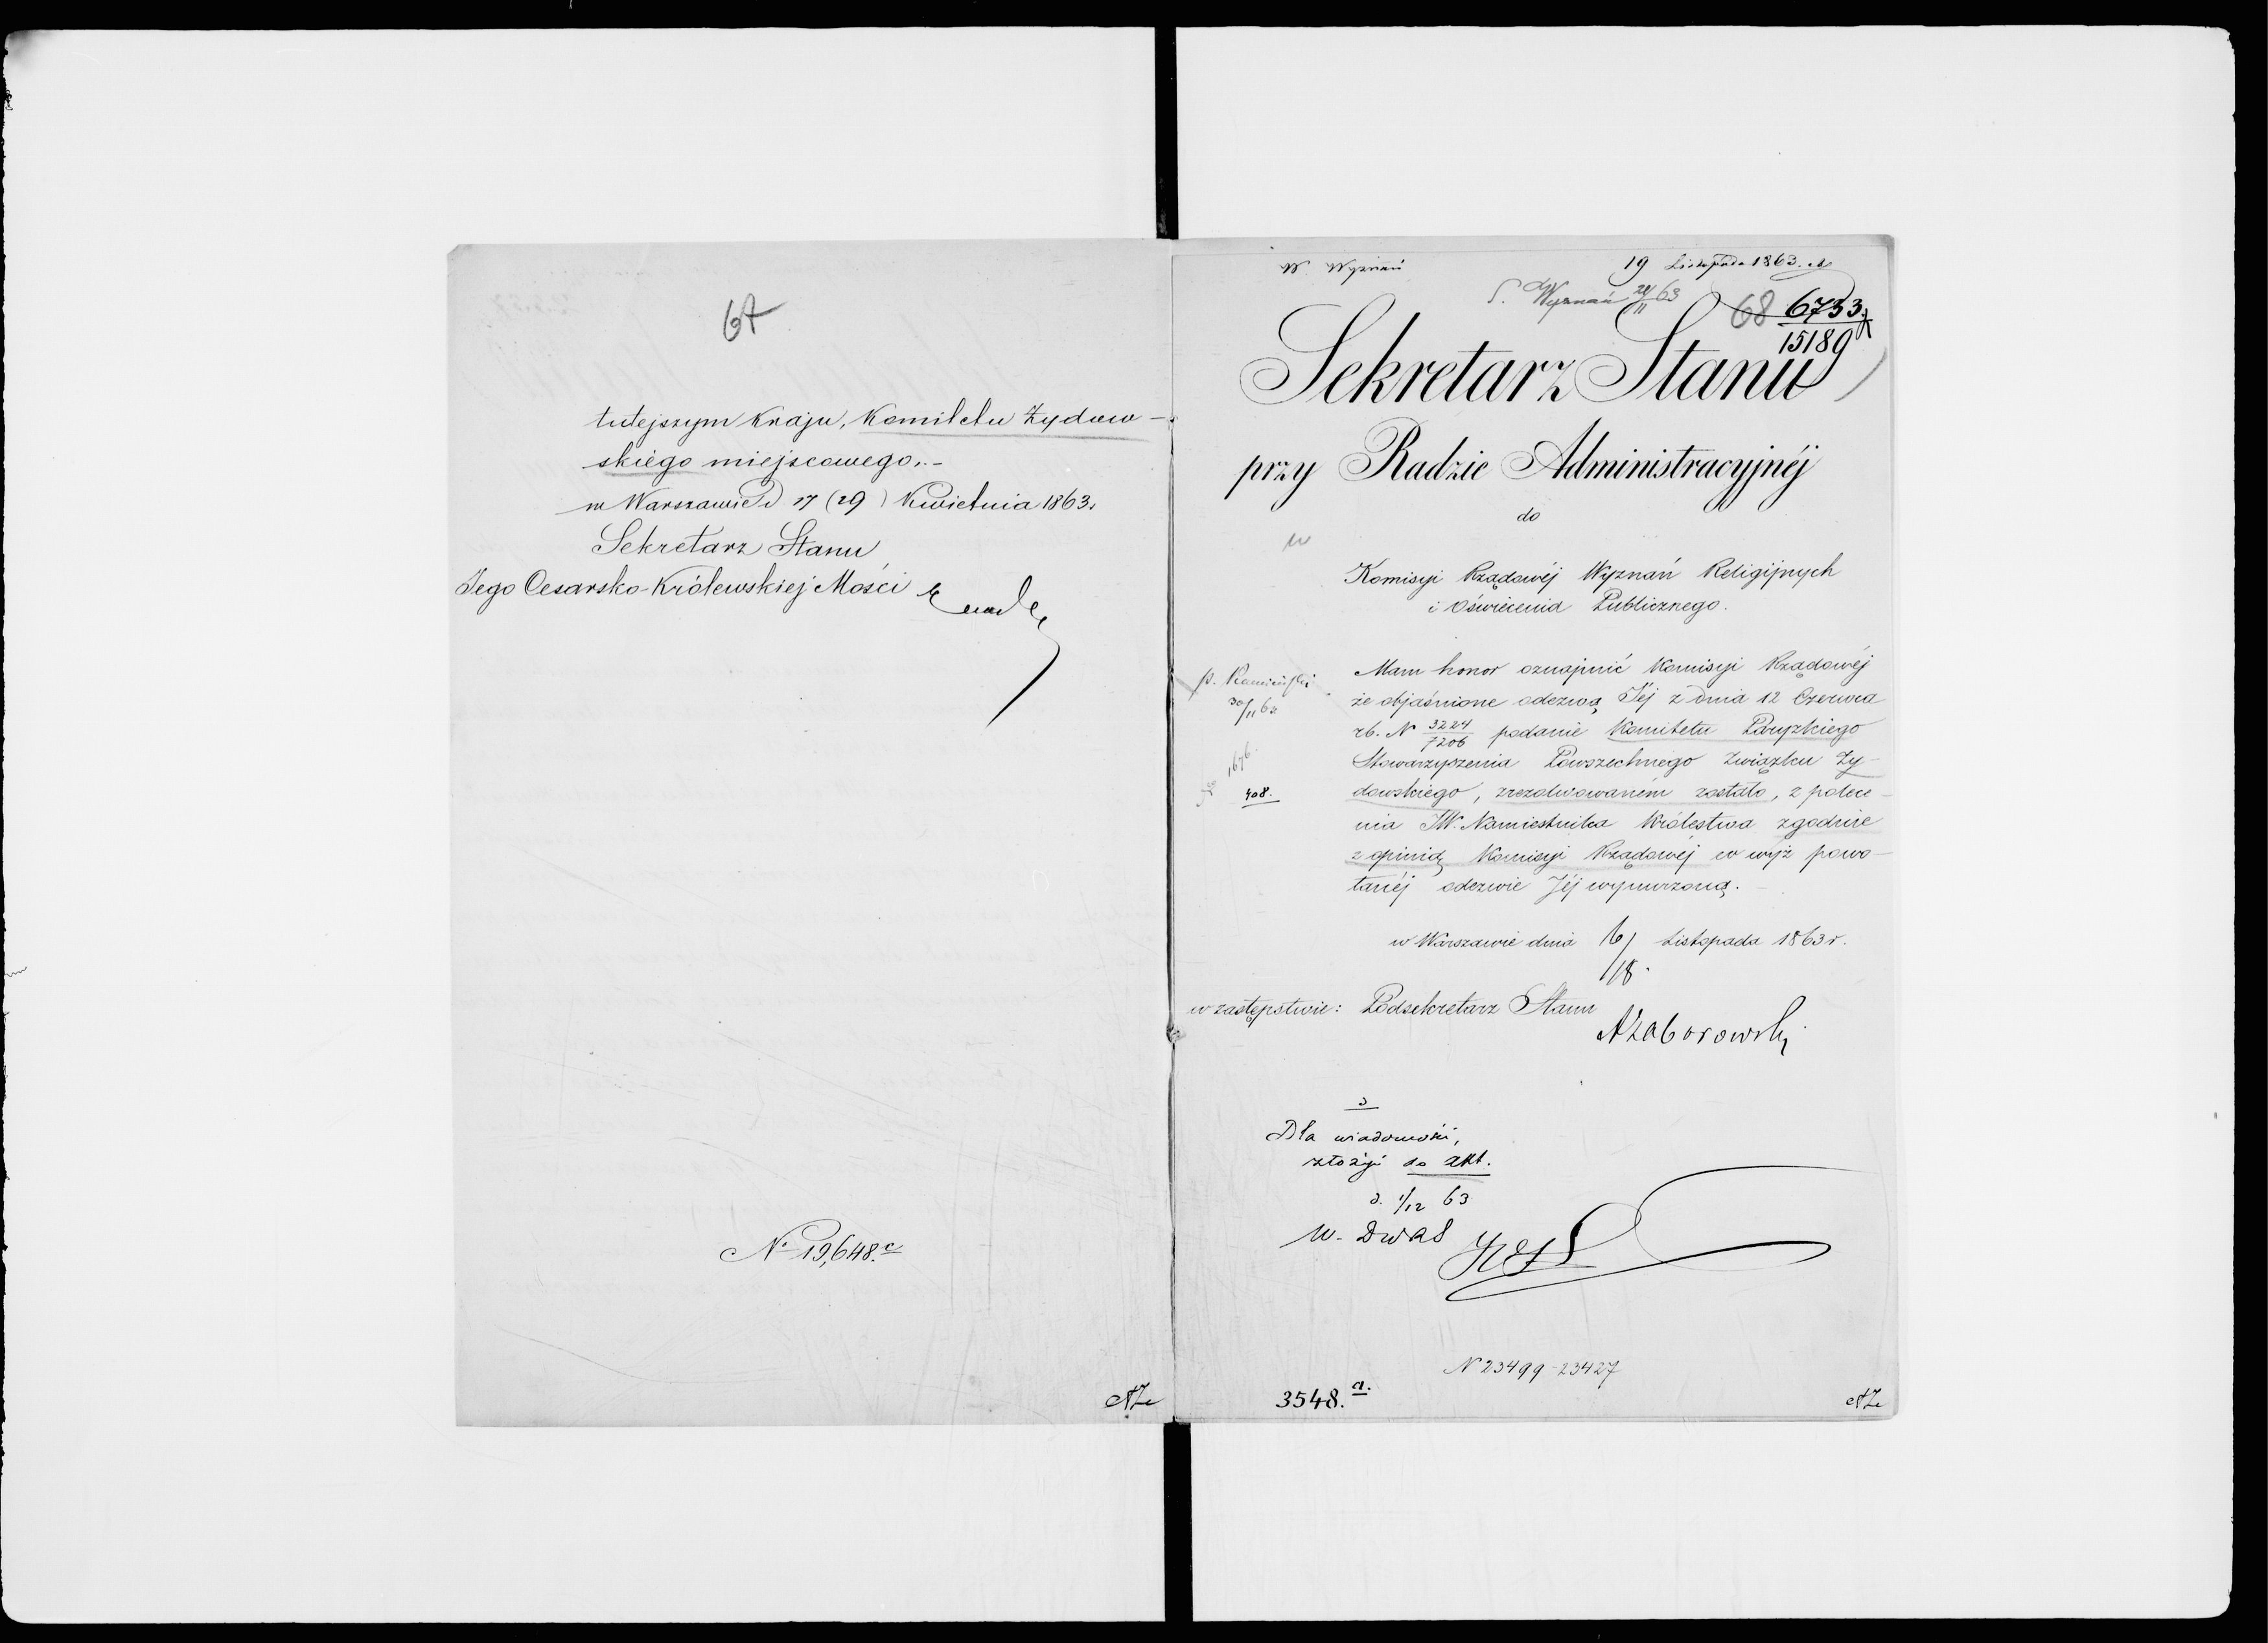 67
tutejszym Kraju, Komitetu Żydow-
skiego miejscowego.-
w Warszawie d 17 (29) Kwietnia 1863.
Sekretarz Stanu
Jego Cesarsko-Królewskiej Mości
No 19,648.c
AZ
W. Wyznań
19 Listopada 1863. r.
S. Wyznań 20/11 63
68
6733.
15189
Sekretarz Stanu
przy Radzie Administracyjnéj
do
w
Komisyi Rządowéj Wyznań Religijnych
i Oświecenia Publicznego.
Mam honor oznajmić Komisyi Rządowéj
że objaśnione odezwą Jéj z dnia 12 Czerwca
rb. N 3224/7206 podanie Komitetu Paryzkiego
Stowarzyszenia Powszechnego Związku Ży-
dowskiego, zrezolwowaném zostało, z polece-
nia JW. Namiestnika Królestwa zgodnie
z opinią Komisyi Rządowéj w wyż powo-
łanéj odezwie Jéj wynurzoną.
p. Kamiński
30/11 63
1676
408.
w Warszawie dnia 6/18 Listopada 1863 r.
w zastępstwie: Podsekretarz Stanu
AZaborowski
Dla wiadomości,
złożyć do akt.
d. 1/12 63
N 23499-23427
3548.a.
AZ